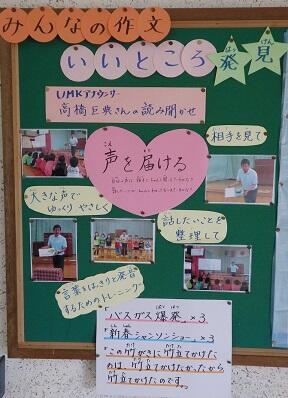 みんなの作文
いいところ発見
はっ けん
UMKアナウンサー
高橋巨典さんの読み聞かせ
こえ とど
声を届ける
相手を見て
大きな声で
ゆっくり やさしく
話したいことを
整理して
言葉をはっきりと発音
するためのトレーニング
ばくはつ
「バスガス爆発」×3
「新春シャンソンショー」×3
「この竹がきに竹立てかけた
のは、竹立てかけたかったから
竹立てかけたのです。」